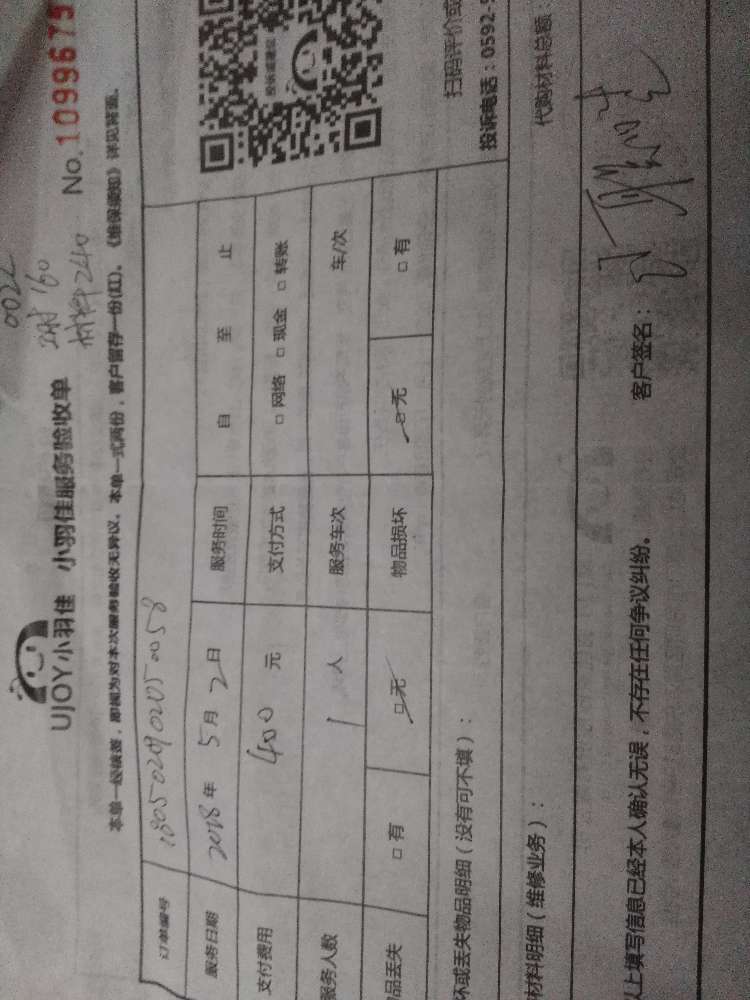 0022
160
材料240
UJOY小羽佳 小羽佳服务验收单 No.1099679
本单一经核签，即视为对本次服务验收无异议。本单一式两份，客户留存一份(红)。《维保须知》详见背面。
订单编号 1805020902050058
服务日期 2018年5月2日 服务时间 自 至 止
支付费用 400元 支付方式 □ 网络 □ 现金 □ 转账
服务人数 1人 服务车次 车/次
品丢失 □ 有 □ 无 物品损坏 □ 无 □ 有
投诉或建议
扫码评价或
投诉电话：0592-5
坏或丢失物品明细（没有可不填）：
材料明细（维修业务）： 代购材料总额：
上填写信息已经本人确认无误，不存在任何争议纠纷。 客户签名：